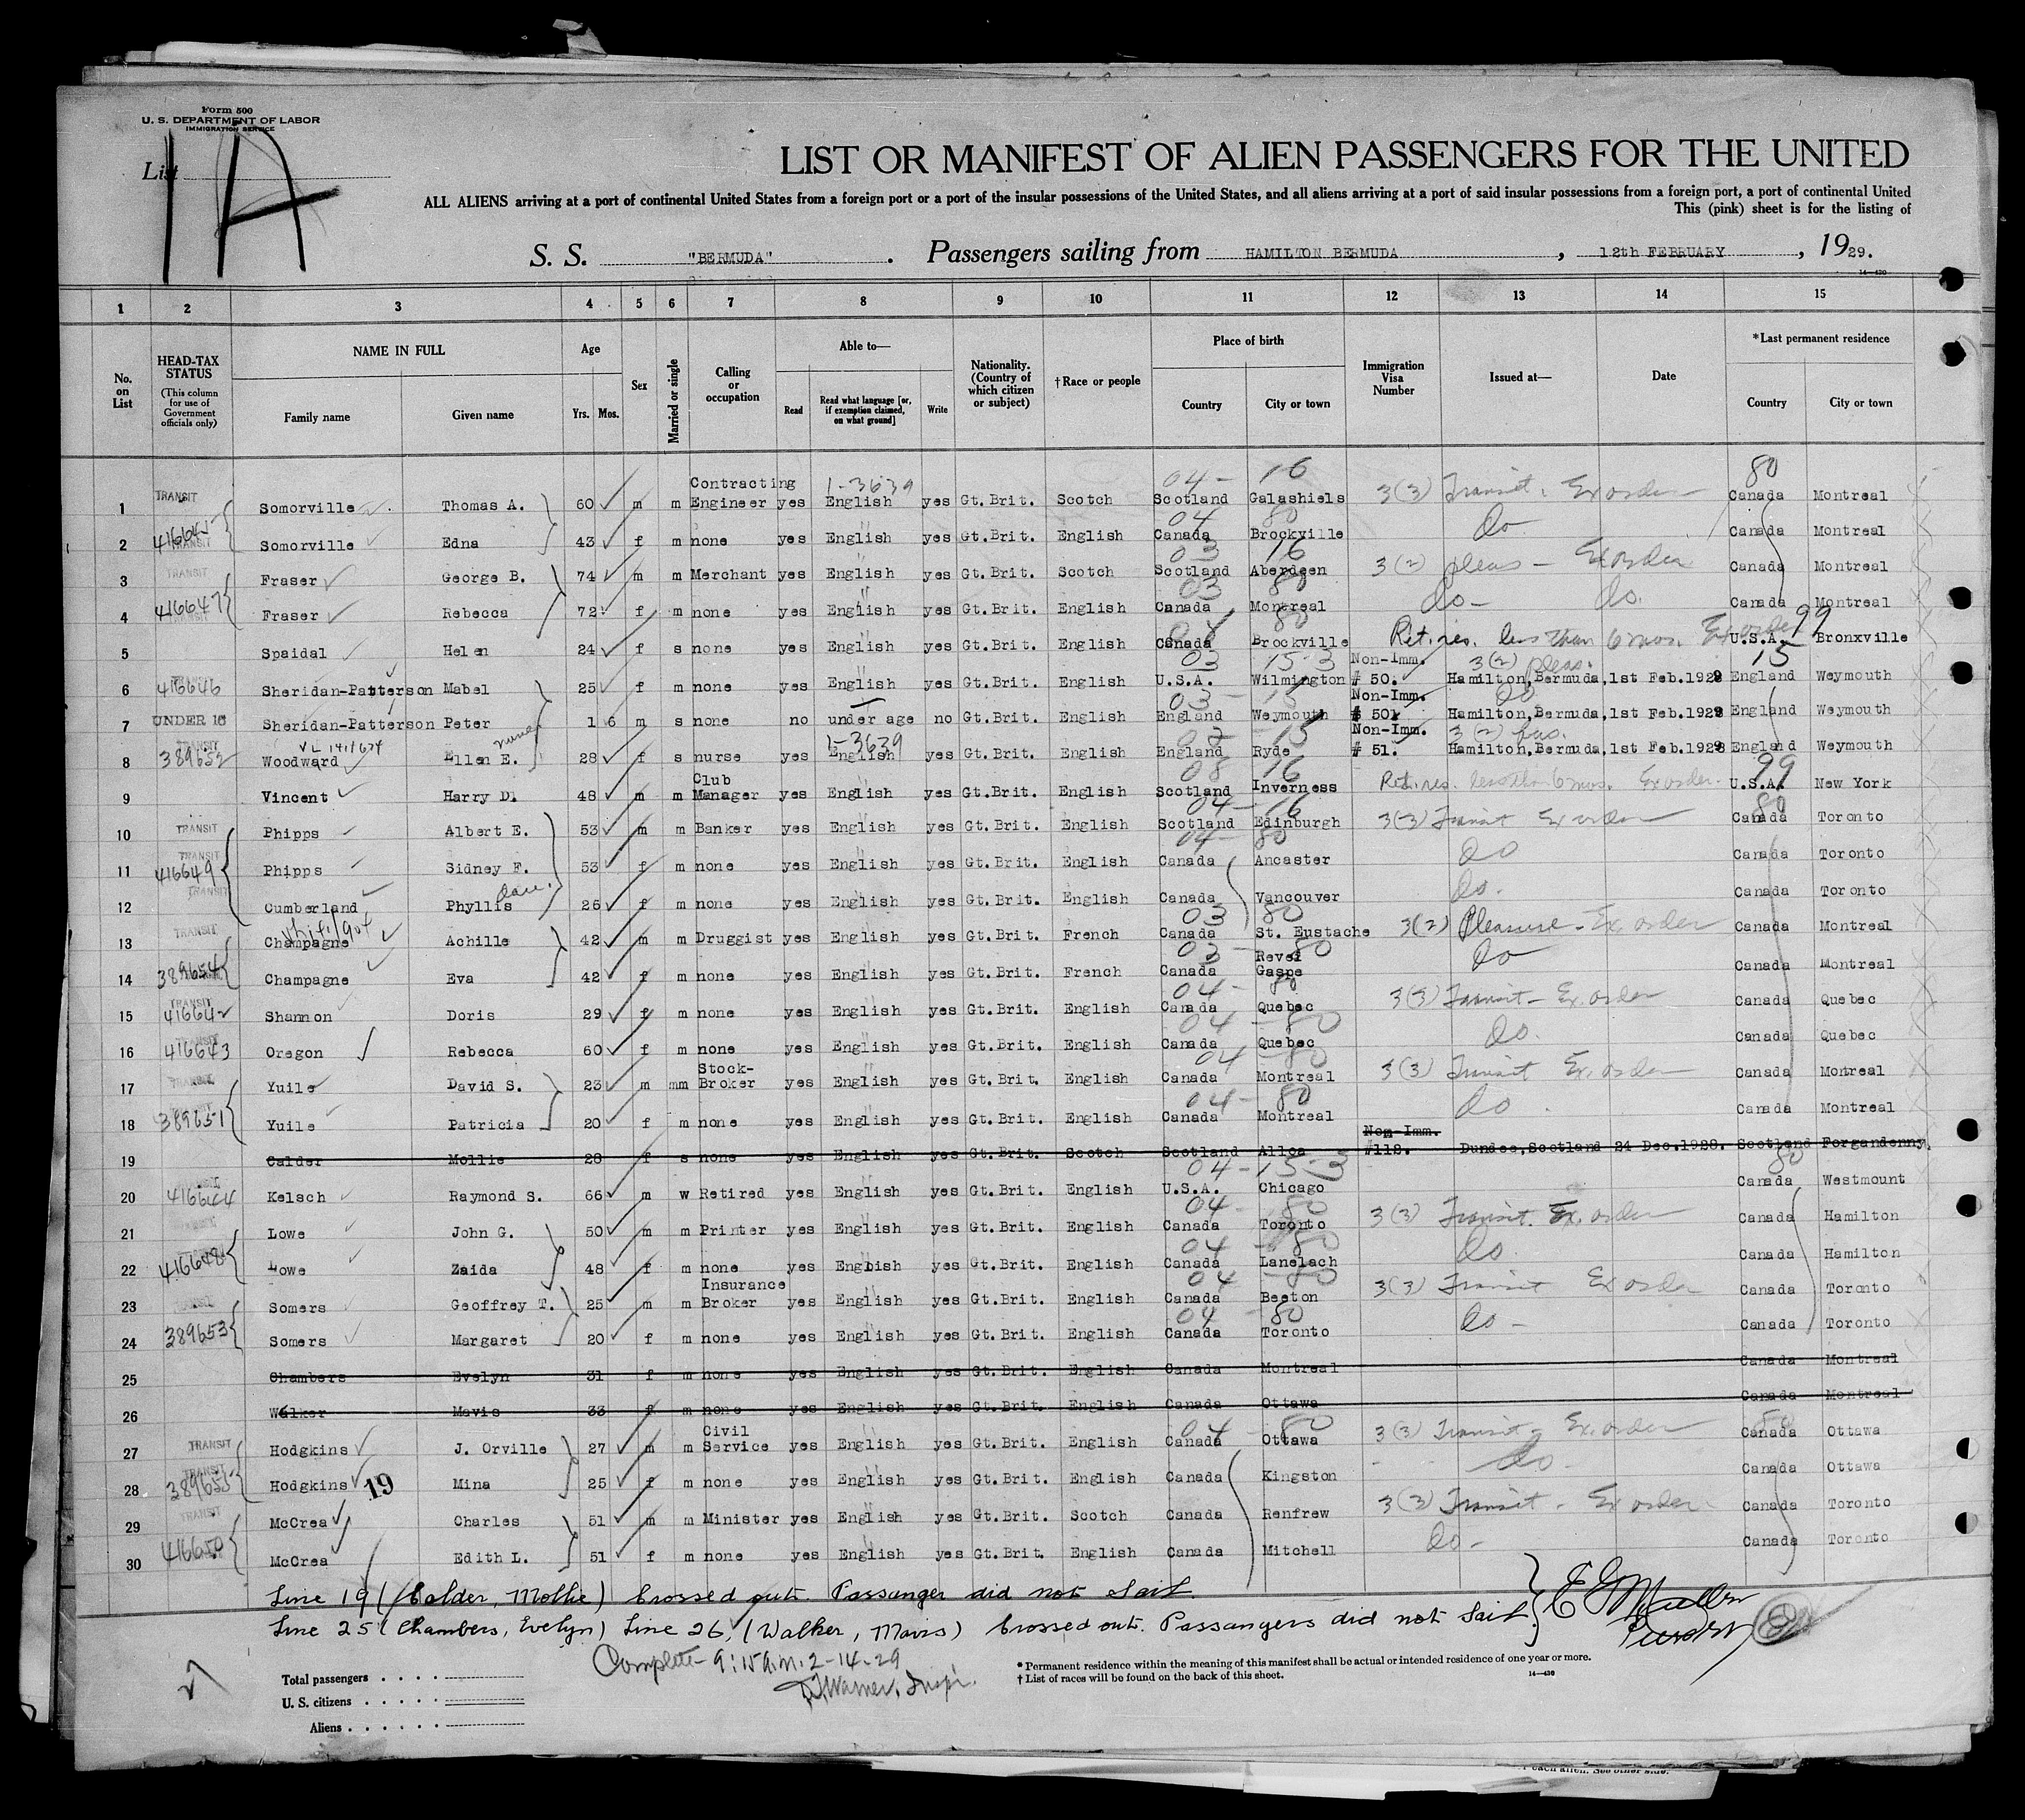 Form 500
U. S. DEPARTMENT OF LABOR
IMMIGRATION SERVICE
List 1A
LIST OR MANIFEST OF ALIEN PASSENGERS FOR THE UNITED
ALL ALIENS arriving at a port of continental United States from a foreign port or a port of the insular possessions of the United States, and all aliens arriving at a port of said insular possessions from a foreign port, a port of continental United
This (pink) sheet is for the listing of
S. S. "BERMUDA". Passengers sailing from HAMILTON BERMUDA, 12th FEBRUARY, 1929.
14-430
1 2 3 4 5 6 7 8 9 10 11 12 13 14 15
No. on List
HEAD-TAX STATUS (This column for use of Government officials only)
NAME IN FULL Family name Given name
Age Yrs. Mos.
Sex
Married or single
Calling or occupation
Able to— Read Read what language [or, if exemption claimed, on what ground] Write
Nationality. (Country of which citizen or subject)
†Race or people
Place of birth Country City or town
Immigration Visa Number
Issued at—
Date
*Last permanent residence Country City or town
1 TRANSIT Somerville Thomas A. 60 m m Contracting Engineer yes 1-3639 English yes Gt.Brit. Scotch 04- 16 Scotland Galashiels 3(3) Transit. Ex order 80 Canada Montreal
2 416645 TRANSIT Somorville Edna 43 f m none yes English yes Gt.Brit. English 04 80 Canada Brockville do Canada Montreal
3 TRANSIT Fraser George B. 74 m m Merchant yes English yes Gt.Brit. Scotch 03 16 Scotland Aberdeen 3(2) pleas - Ex order Canada Montreal
4 416647 TRANSIT Fraser Rebecca 72 f m none yes English yes Gt.Brit. English 03 80 Canada Montreal do- do. Canada Montreal
5 Spaidal Helen 24 f s none yes English yes Gt.Brit. English 80 Canada Brockville Ret. res. less than 6 mos. Ex order 99 U.S.A. Bronxville
6 416646 Sheridan-Patterson Mabel 25 f m none yes English yes Gt.Brit. English 03 15-3 U.S.A. Wilmington Non-Imm. # 50. 3(2) pleas. Hamilton,Bermuda,1st Feb.1929 15 England Weymouth
7 UNDER 16 Sheridan-Patterson Peter 1 6 m s none no under age no Gt.Brit. English 03- 15 England Weymouth Non-Imm. # 50 do Hamilton,Bermuda,1st Feb.1929 England Weymouth
8 TRANSIT 389652 VL 141/674 Woodward Ellen E. nurse 28 f s nurse yes 1-3639 English yes Gt.Brit. English 15 England Ryde Non-Imm. # 51. Hamilton,Bermuda,1st Feb.1929 England Weymouth
9 Vincent Harry D. 48 m m Club Manager yes English yes Gt.Brit. English 08 16 Scotland Inverness Ret. res. less than 6 mos. Ex order. 99 U.S.A. New York
10 TRANSIT Phipps Albert E. 53 m m Banker yes English yes Gt.Brit. English 04- 16 Scotland Edinburgh 3(3) Transit Ex order 80 Canada Toronto
11 TRANSIT 416649 Phipps Sidney F. 53 f m none yes English yes Gt.Brit. English 04- 80 Canada Ancaster do Canada Toronto
12 TRANSIT Cumberland Phyllis dau. 26 f m none yes English yes Gt.Brit. English Canada Vancouver do. Canada Toronto
13 TRANSIT Champagne Achille 42 m m Druggist yes English yes Gt.Brit. French 03 80 Canada St. Eustache 3(2) Pleasure - Ex. order Canada Montreal
14 389654 Champagne Eva 42 f m none yes English yes Gt.Brit. French 03- 80 Canada Gaspe do Canada Montreal
15 TRANSIT 416642 Shannon Doris 29 f m none yes English yes Gt.Brit. English 04- 80 Canada Quebec 3(3) Transit - Ex. order Canada Quebec
16 416643 Oregon Rebecca 60 f m none yes English yes Gt.Brit. English 04 - 80 Canada Quebec do. Canada Quebec
17 TRANSIT Yuile David S. 23 m mm Stock-Broker yes English yes Gt.Brit. English 04 - 80 Canada Montreal 3(3) Transit Ex. order Canada Montreal
18 389651 Yuile Patricia 20 f m none yes English yes Gt.Brit. English 04- 80 Canada Montreal do Canada Montreal
19 Calder Mollie 28 f s none yes English yes Gt.Brit. Scotch Scotland Alloa Non-Imm. #112. Dundee,Scotland 24 Dec.1928. Scotland Forgandenny.
20 416644 Kelsch Raymond S. 66 m w Retired yes English yes Gt.Brit. English 04-15-3 U.S.A. Chicago 80 Canada Westmount
21 TRANSIT Lowe John G. 50 m m Printer yes English yes Gt.Brit. English 04- 80 Canada Toronto 3(3) Transit. Ex. order Canada Hamilton
22 416648 Lowe Zaida 48 f m none yes English yes Gt.Brit. English 04 - 80 Canada Lanelach do. Canada Hamilton
23 TRANSIT Somers Geoffrey T. 25 m m Insurance Broker yes English yes Gt.Brit. English 04 - 80 Canada Beeton 3(3) Transit Ex order Canada Toronto
24 389653 Somers Margaret 20 f m none yes English yes Gt.Brit. English 04 - 80 Canada Toronto do - Canada Toronto
25 Chambers Evelyn 31 f m none yes English yes Gt.Brit. English Canada Montreal Canada Montreal
26 Walker Mavis 33 f m none yes English yes Gt.Brit. English Canada Ottawa Canada Montreal
27 TRANSIT Hodgkins J. Orville 27 m m Civil Service yes English yes Gt.Brit. English 04 - 80 Canada Ottawa 3(3) Transit - Ex. order 80 Canada Ottawa
28 TRANSIT 389655 Hodgkins 19 Mina 25 f m none yes English yes Gt.Brit. English Canada Kingston do - Canada Ottawa
29 TRANSIT McCrea Charles 51 m m Minister yes English yes Gt.Brit. Scotch Canada Renfrew 3(3) Transit - Ex order Canada Toronto
30 416650 McCrea Edith L. 51 f m none yes English yes Gt.Brit. English Canada Mitchell do - Canada Toronto
Line 19 (Calder, Mollie) Crossed out. Passanger did not Sail.
Line 25 (Chambers, Evelyn) Line 26, (Walker, Mavis) Crossed out. Passangers did not Sail
Purser
Complete - 9:15 a.m. 2-14-29
Warner, Inspr.
Total passengers
U. S. citizens
Aliens
* Permanent residence within the meaning of this manifest shall be actual or intended residence of one year or more.
† List of races will be found on the back of this sheet.
14-430
each alien. See other side.